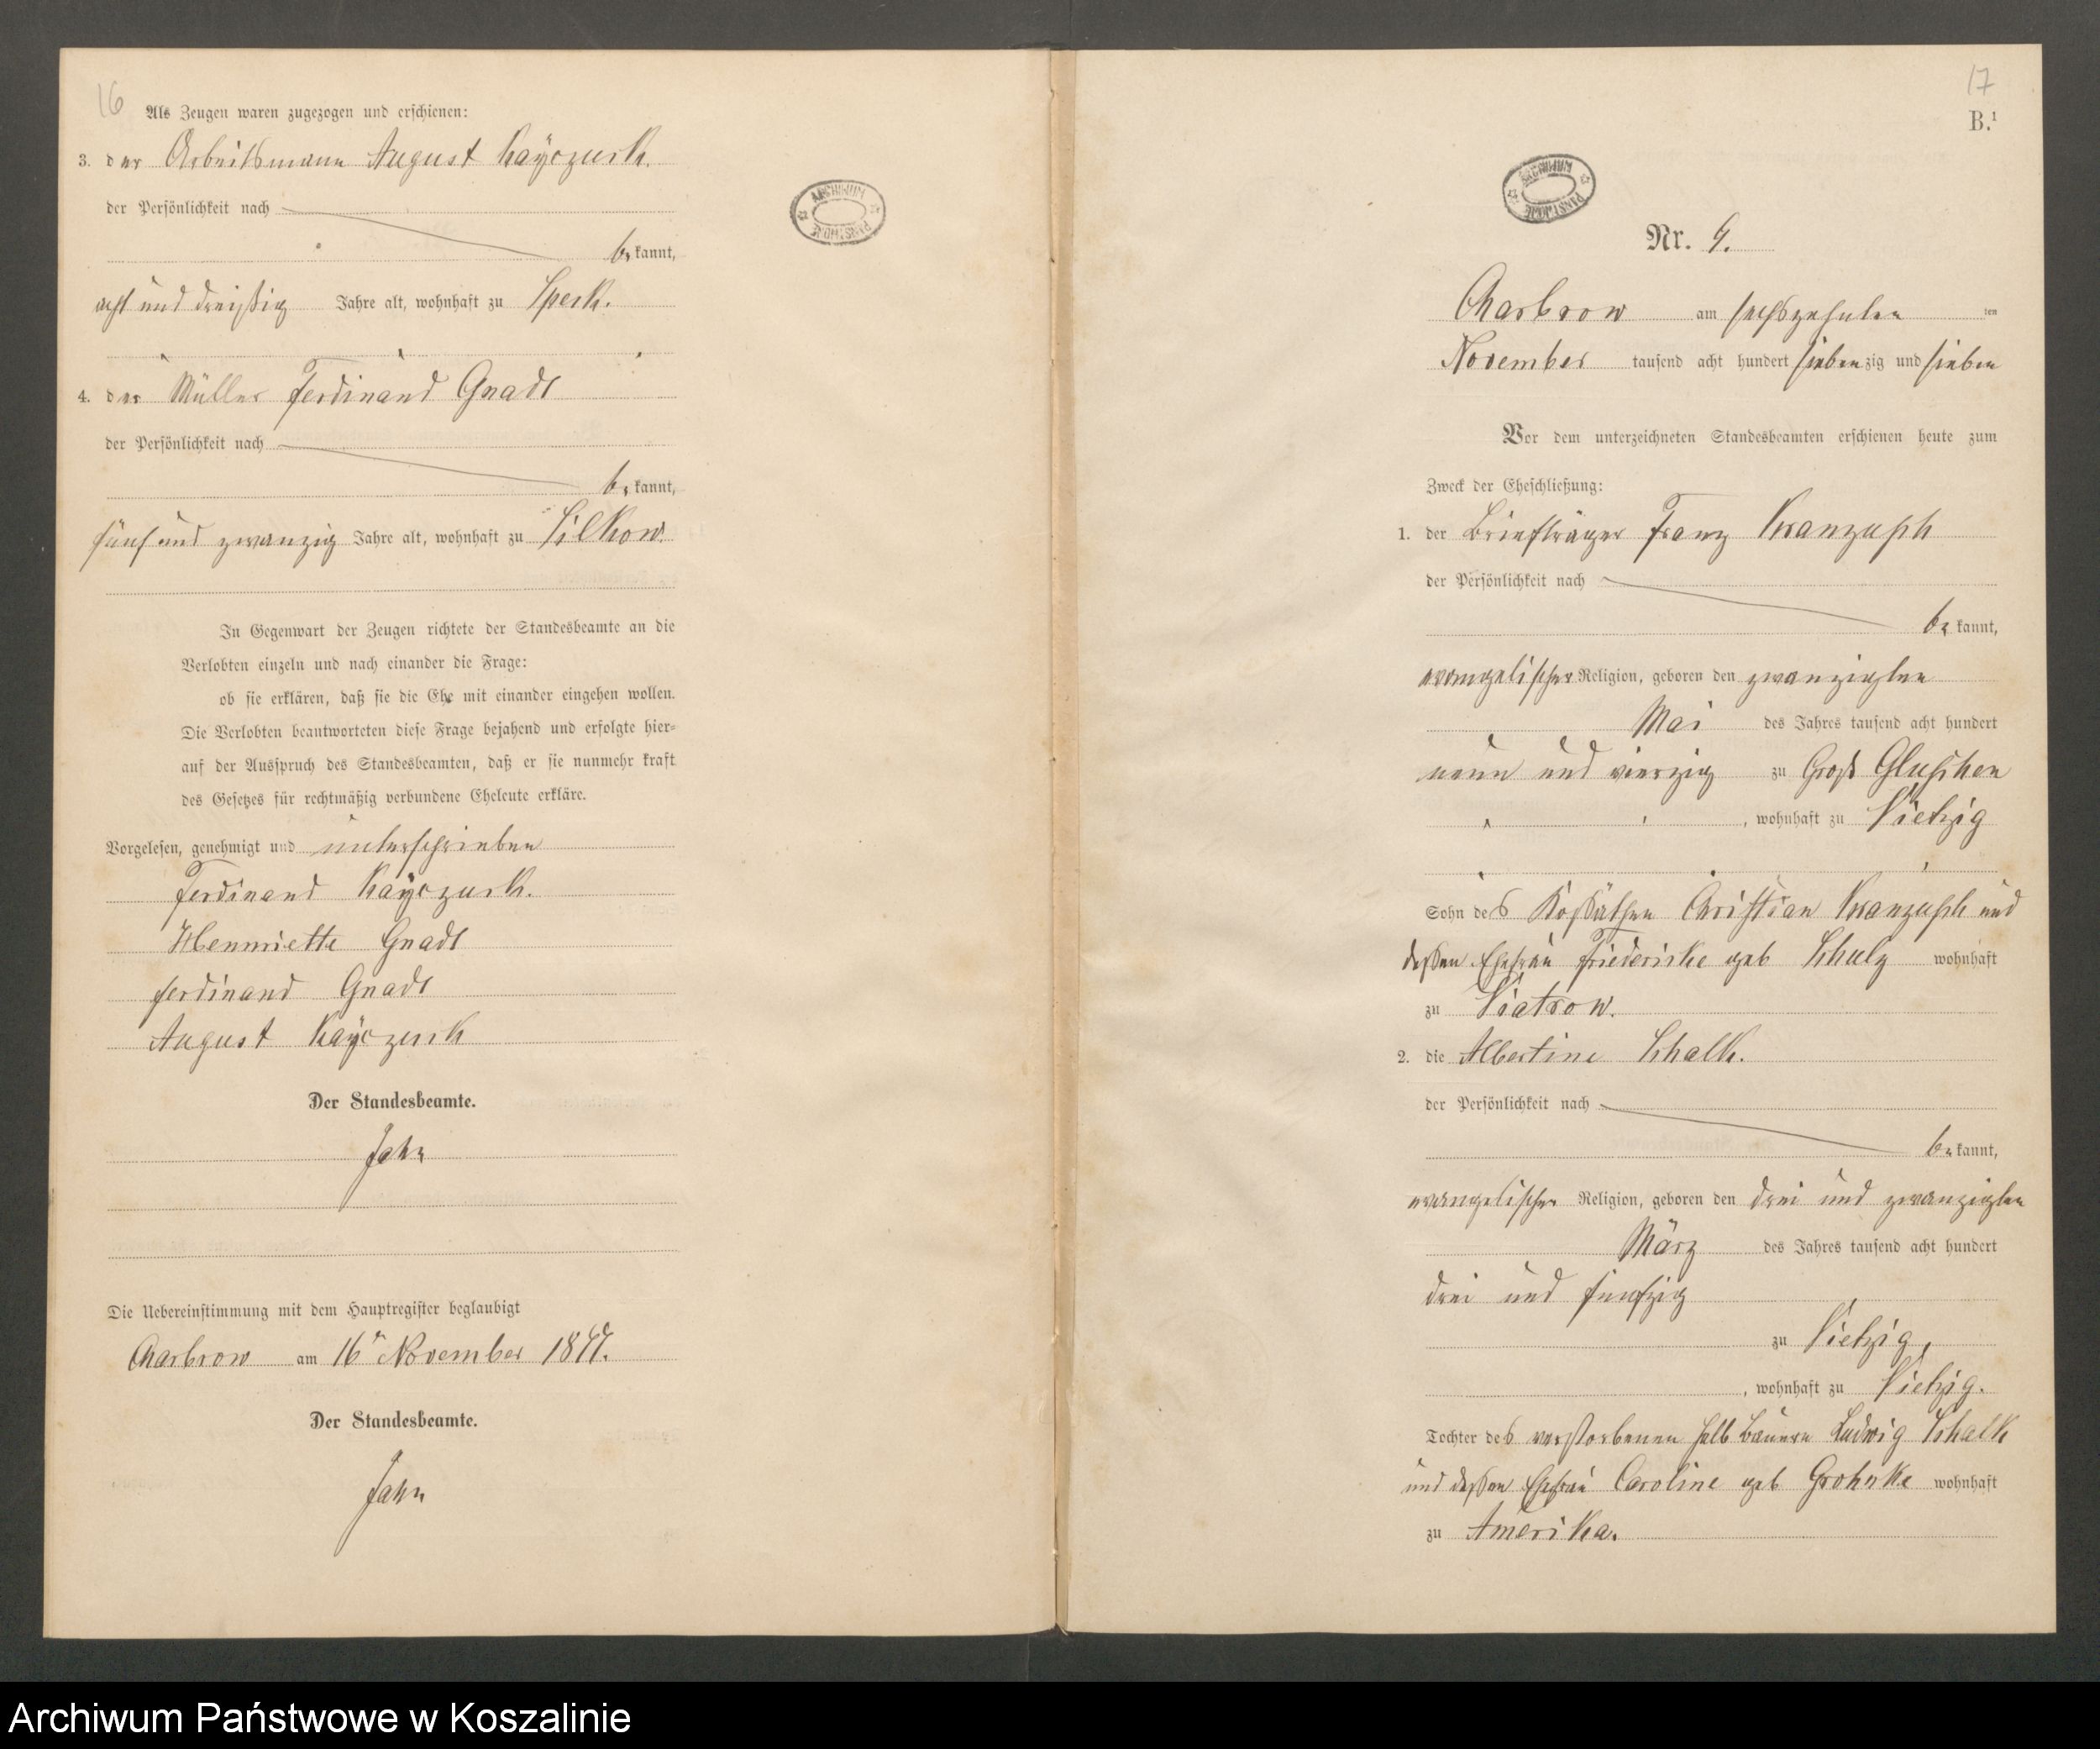 16
Als Zeugen waren zugezogen und erschienen:
3. der Arbeitsmann August Kayczuck.
der Persönlichkeit nach
bekannt,
acht und dreißig Jahre alt, wohnhaft zu Speck.
4. der Müller Ferdinand Gnadt
der Persönlichkeit nach
bekannt,
fünf und zwanzig Jahre alt, wohnhaft zu Silkow.
In Gegenwart der Zeugen richtete der Standesbeamte an die
Verlobten einzeln und nach einander die Frage:
ob sie erklären, daß sie die Ehe mit einander eingehen wollen.
Die Verlobten beantworteten diese Frage bejahend und erfolgte hier-
auf der Ausspruch des Standesbeamten, daß er sie nunmehr kraft
des Gesetzes für rechtmäßig verbundene Eheleute erkläre.
Vorgelesen, genehmigt und unterschrieben
Ferdinand Kayczuck.
Henriette Gnadt
Ferdinand Gnadt
August Kayczuck
Der Standesbeamte.
Jahn
Die Uebereinstimmung mit dem Hauptregister beglaubigt
Charbrow am 16 November 1877.
Der Standesbeamte.
Jahn
ARCHIWUM PAŃSTWOWE
17
B.¹
ARCHIWUM PAŃSTWOWE
Nr. 9.
Charbrow am sechszehnten ten
November tausend acht hundert siebenzig und sieben
Vor dem unterzeichneten Standesbeamten erschienen heute zum
Zweck der Eheschließung:
1. der Briefträger Franz Kranzusch
der Persönlichkeit nach
bekannt,
evangelischer Religion, geboren den zwanzigsten
Mai des Jahres tausend acht hundert
neun und vierzig zu Groß Gluschen
, wohnhaft zu Vietzig
Sohn des Kossäthen Christian Kranzusch und
dessen Ehefrau Friedericke geb Schulz wohnhaft
zu Viatrow.
2. die Albertine Schalk.
der Persönlichkeit nach
bekannt,
evangelischer Religion, geboren den drei und zwanzigsten
März des Jahres tausend acht hundert
drei und funfzig
zu Vietzig,
, wohnhaft zu Vietzig.
Tochter des verstorbenen Halb Bauern Ludwig Schalk
und dessen Ehefrau Caroline geb Grohnke wohnhaft
zu Amerika.
Archiwum Państwowe w Koszalinie